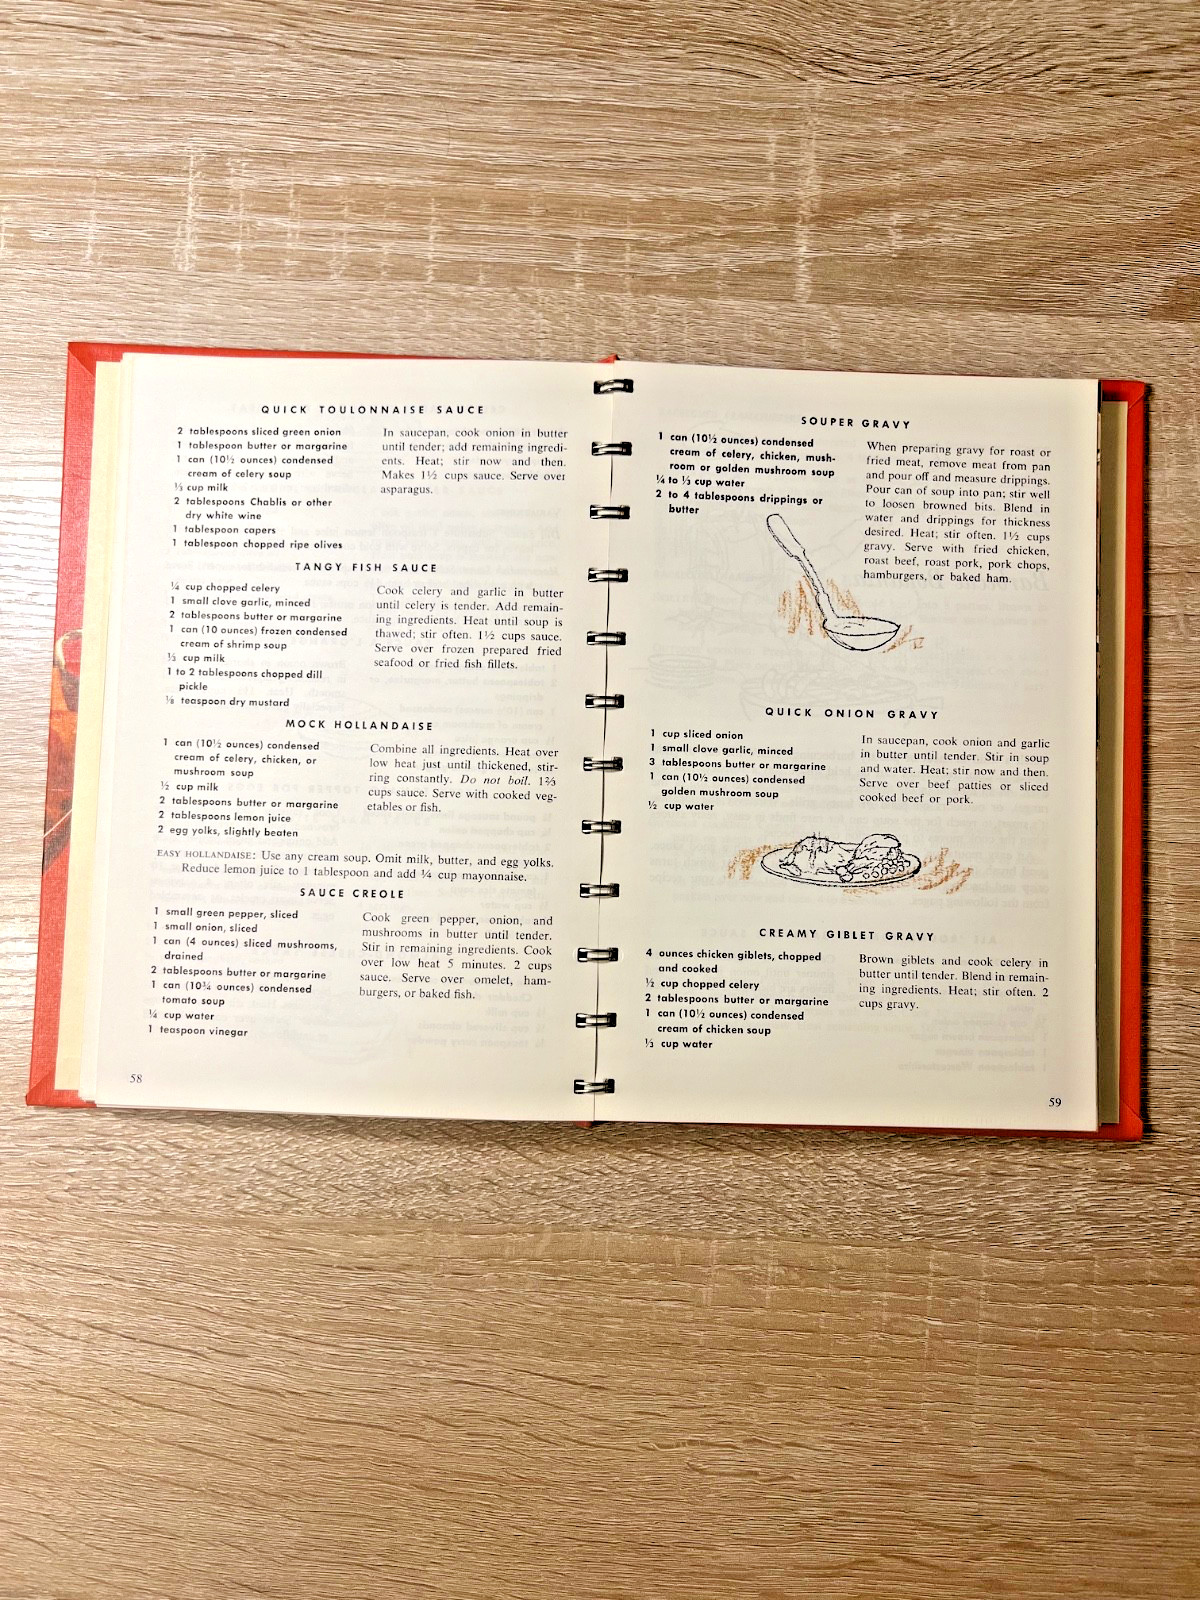 QUICK TOULONNAISE SAUCE
2 tablespoons sliced green onion
1 tablespoon butter or margarine
1 can (10½ ounces) condensed
cream of celery soup
⅓ cup milk
2 tablespoons Chablis or other
dry white wine
1 tablespoon capers
1 tablespoon chopped ripe olives
In saucepan, cook onion in butter
until tender; add remaining ingredi-
ents. Heat; stir now and then.
Makes 1½ cups sauce. Serve over
asparagus.
TANGY FISH SAUCE
¼ cup chopped celery
1 small clove garlic, minced
2 tablespoons butter or margarine
1 can (10 ounces) frozen condensed
cream of shrimp soup
⅓ cup milk
1 to 2 tablespoons chopped dill
pickle
⅛ teaspoon dry mustard
Cook celery and garlic in butter
until celery is tender. Add remain-
ing ingredients. Heat until soup is
thawed; stir often. 1½ cups sauce.
Serve over frozen prepared fried
seafood or fried fish fillets.
MOCK HOLLANDAISE
1 can (10½ ounces) condensed
cream of celery, chicken, or
mushroom soup
½ cup milk
2 tablespoons butter or margarine
2 tablespoons lemon juice
2 egg yolks, slightly beaten
Combine all ingredients. Heat over
low heat just until thickened, stir-
ring constantly. Do not boil. 1⅔
cups sauce. Serve with cooked veg-
etables or fish.
EASY HOLLANDAISE: Use any cream soup. Omit milk, butter, and egg yolks.
Reduce lemon juice to 1 tablespoon and add ¼ cup mayonnaise.
SAUCE CREOLE
1 small green pepper, sliced
1 small onion, sliced
1 can (4 ounces) sliced mushrooms,
drained
2 tablespoons butter or margarine
1 can (10¾ ounces) condensed
tomato soup
¼ cup water
1 teaspoon vinegar
Cook green pepper, onion, and
mushrooms in butter until tender.
Stir in remaining ingredients. Cook
over low heat 5 minutes. 2 cups
sauce. Serve over omelet, ham-
burgers, or baked fish.
58
SOUPER GRAVY
1 can (10½ ounces) condensed
cream of celery, chicken, mush-
room or golden mushroom soup
¼ to ⅓ cup water
2 to 4 tablespoons drippings or
butter
When preparing gravy for roast or
fried meat, remove meat from pan
and pour off and measure drippings.
Pour can of soup into pan; stir well
to loosen browned bits. Blend in
water and drippings for thickness
desired. Heat; stir often. 1½ cups
gravy. Serve with fried chicken,
roast beef, roast pork, pork chops,
hamburgers, or baked ham.
QUICK ONION GRAVY
1 cup sliced onion
1 small clove garlic, minced
3 tablespoons butter or margarine
1 can (10½ ounces) condensed
golden mushroom soup
½ cup water
In saucepan, cook onion and garlic
in butter until tender. Stir in soup
and water. Heat; stir now and then.
Serve over beef patties or sliced
cooked beef or pork.
CREAMY GIBLET GRAVY
4 ounces chicken giblets, chopped
and cooked
½ cup chopped celery
2 tablespoons butter or margarine
1 can (10½ ounces) condensed
cream of chicken soup
⅓ cup water
Brown giblets and cook celery in
butter until tender. Blend in remain-
ing ingredients. Heat; stir often. 2
cups gravy.
59